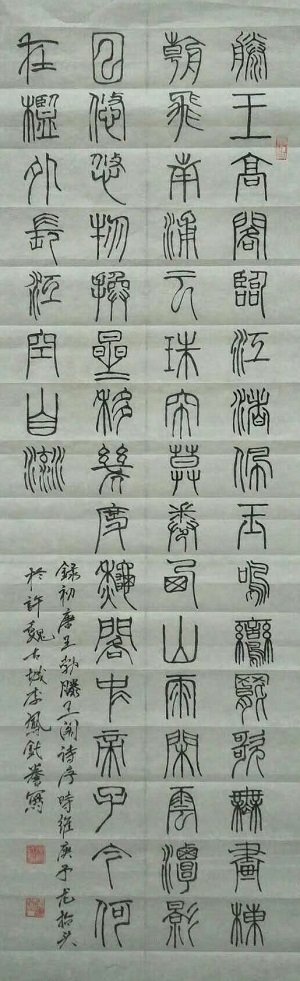 滕王高閣臨江渚佩玉鳴鸞罷歌舞畫棟
朝飛南浦云珠帘暮卷西山雨閑雲潭影
日悠悠物換星移幾度秋閣中帝子今何
在檻外長江空自流
錄初唐王勃滕王阁詩序時維庚子龙抬头
於許魏古城李鳳